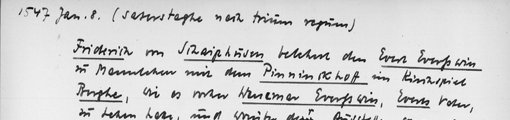 1547 Jan. 8. (saterstaghe nach trium regum)
Friderich von Schaiphusen belehnt den Evert Everßwin
zu Mannlehen mit dem Pinninckhoff im Kirchspiel
Berghe, wie es vorher Wenemar Everßwin, Everts Vater,
zu Lehen hatte, und